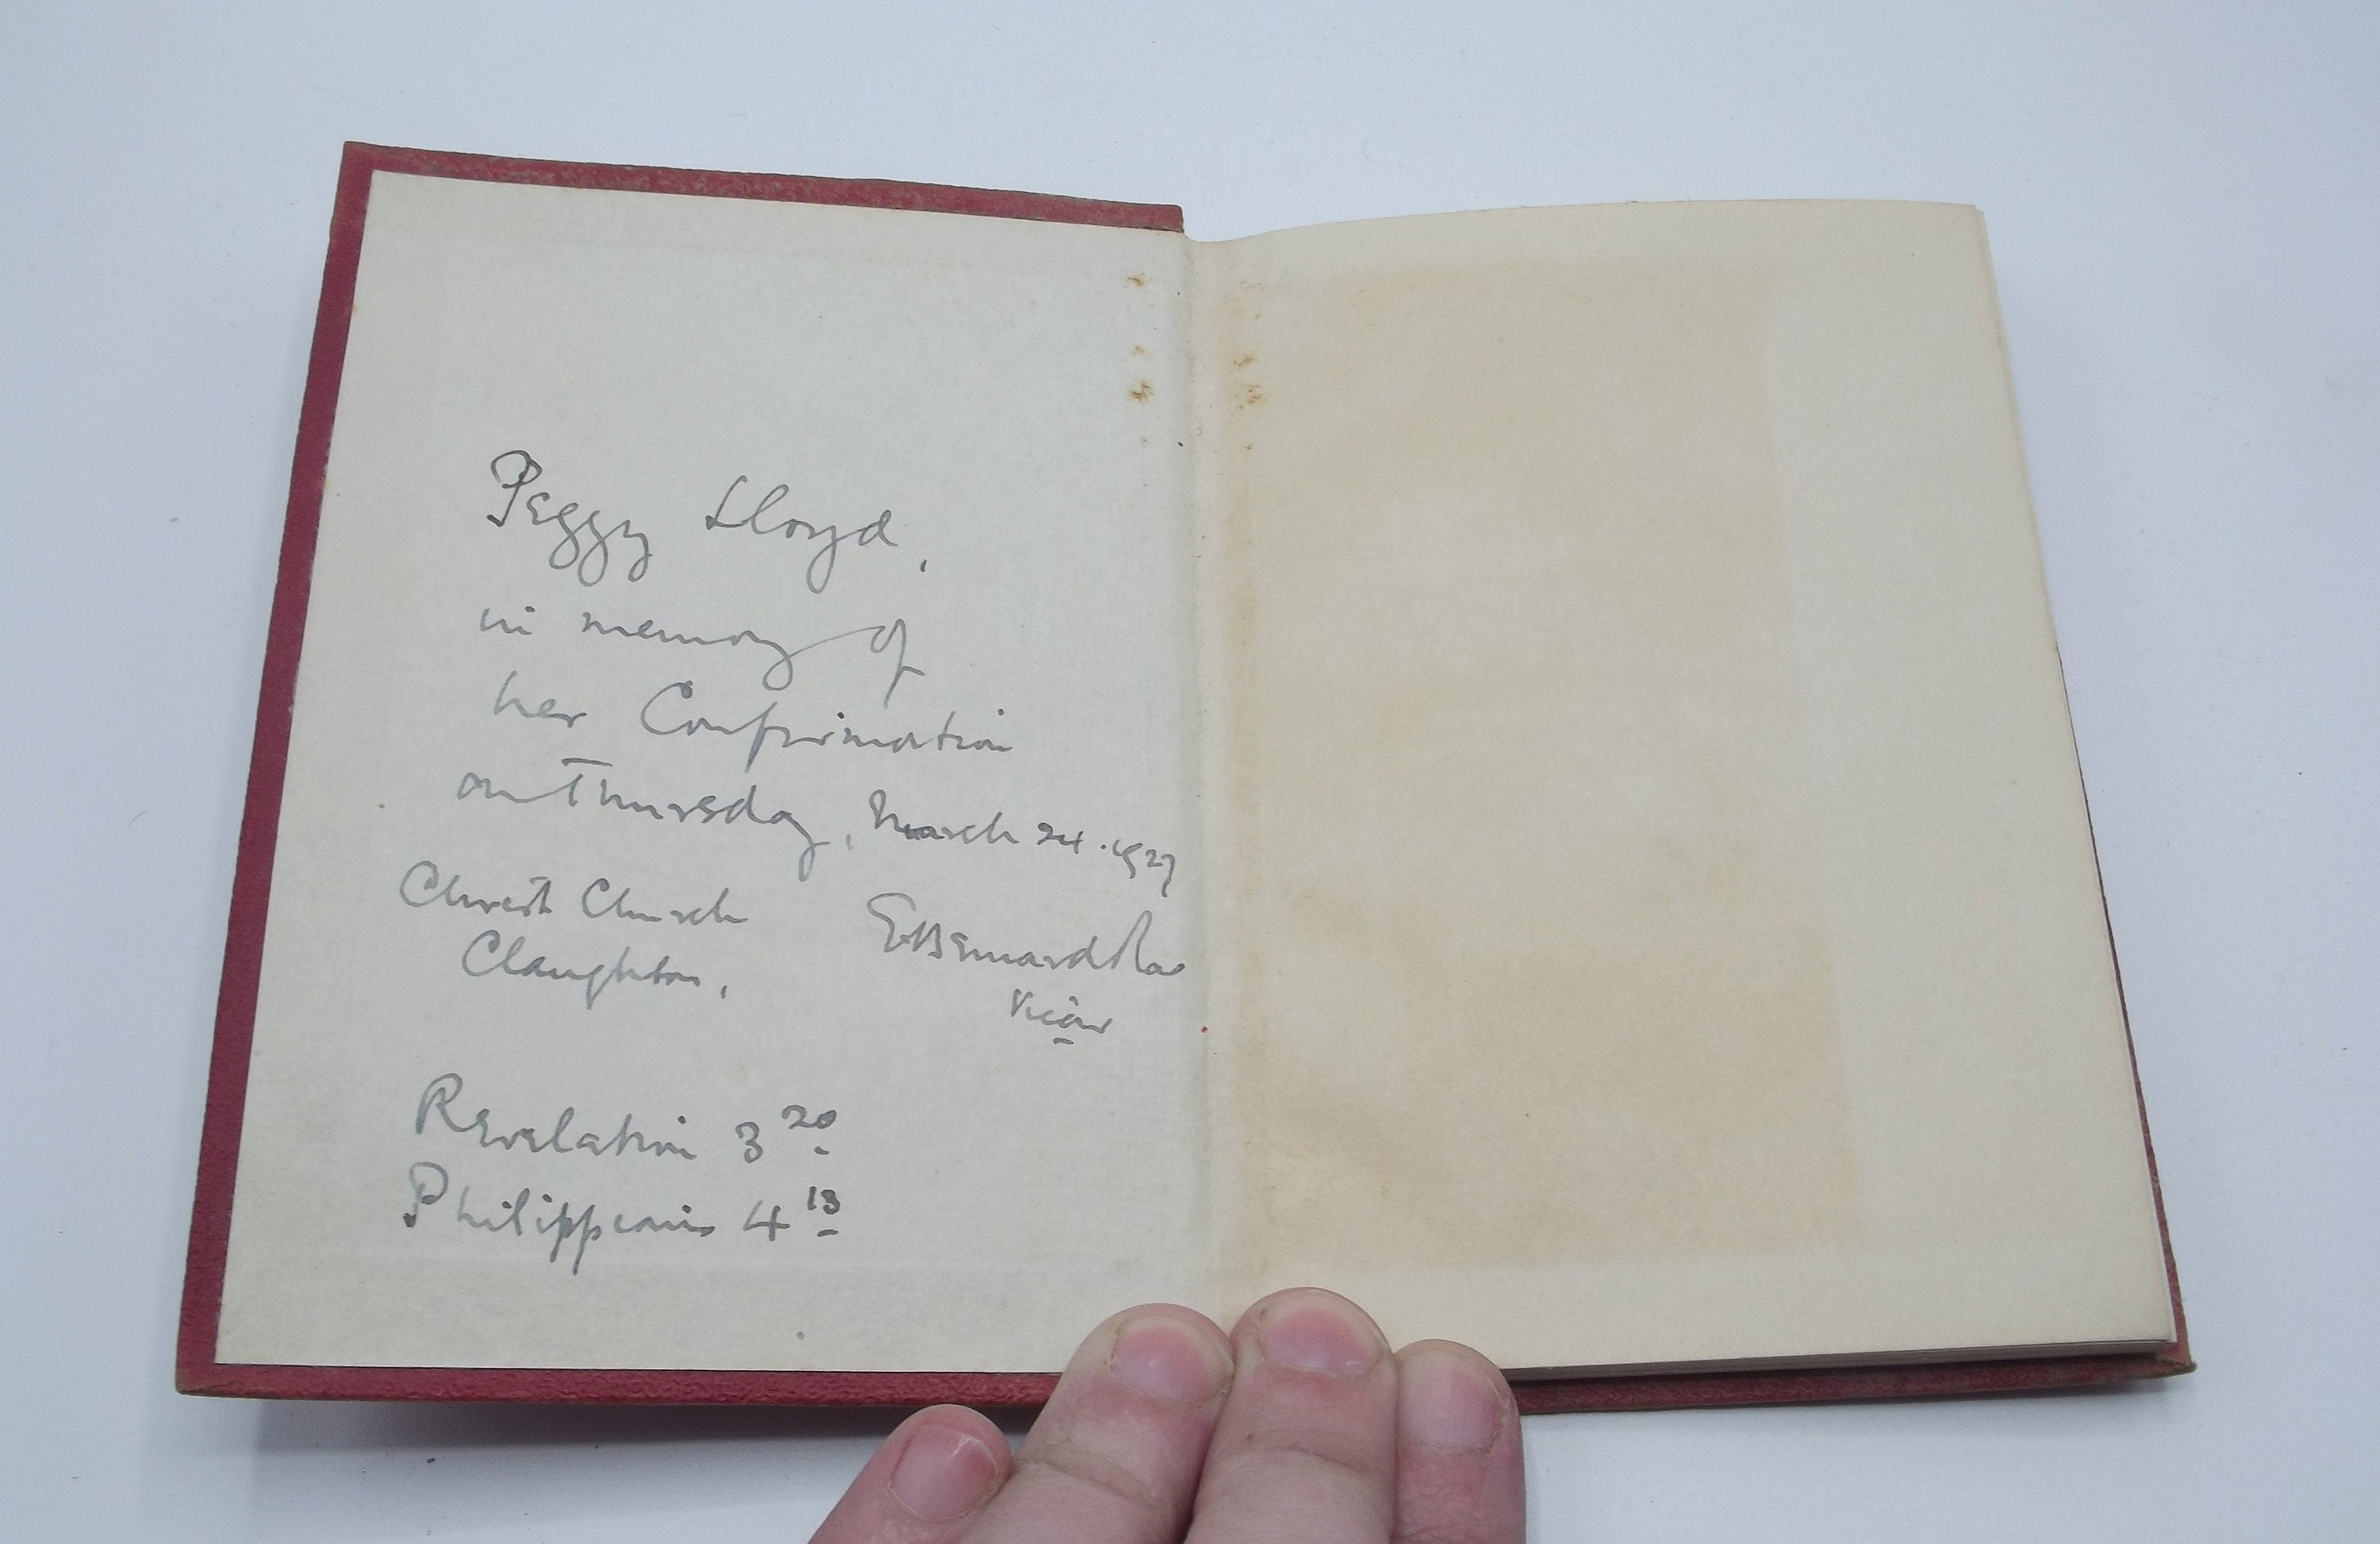 Peggy Lloyd,
in memory of
her Confirmation
on Thursday, March 24. 1927
Christ Church
Claughton,
Vicar
Revelation 3 20
Philippians 4 13